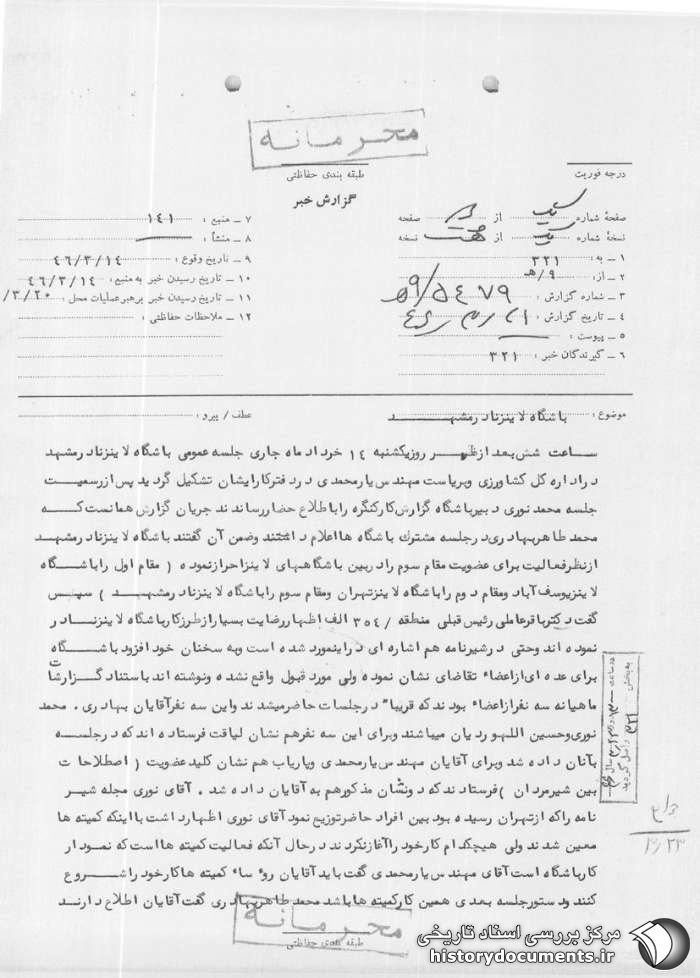 محرمانه
درجه فوریت
طبقه بندی حفاظتی
گزارش خبر
صفحهٔ شماره یک از دو صفحه
نسخهٔ شماره یک از هفت نسخه
۱ ـ به : ۳۲۱
۲ ـ از: ۹/ه
۳ ـ شماره گزارش : ۹/۵۴۷۹ه
۴ ـ تاریخ گزارش :
۵ ـ پیوست :
۶ ـ گیرندگان خبر : ۳۲۱
۷ ـ منبع : ۱۴۱
۸ ـ منشأ :
۹ ـ تاریخ وقوع : ۴۶/۳/۱۴
۱۰ ـ تاریخ رسیدن خبر به منبع : ۴۶/۳/۱۴
۱۱ ـ تاریخ رسیدن خبر برهبر عملیات محل : /۳/۲۰
۱۲ ـ ملاحظات حفاظتی :
موضوع : باشگاه لاینزنادرمشهد
عطف / پیرو :
ساعت شش بعد ازظهر روزیکشنبه ۱۴ خرداد ماه جاری جلسه عمومی باشگاه لاینزنادرمشهد
دراداره کل کشاورزی وبریاست مهندس یارمحمدی دردفترکارایشان تشکیل گردید پس ازرسمیت
جلسه محمد نوری دبیرباشگاه گزارش کارکنگره راباطلاع حضاررساندند جریان گزارش همانست که
محمد طاهربهادری درجلسه مشترک باشگاه هااعلام داشتند وضمن آن گفتند باشگاه لاینزنادرمشهد
ازنظرفعالیت برای عضویت مقام سوم رادربین باشگاههای لاینزاحرازنموده ( مقام اول راباشگاه
لاینزیوسف آباد ومقام دوم راباشگاه لاینزتهران ومقام سوم راباشگاه لاینزنادرمشهد ) سپس
گفت دکترباقرعاملی رئیس قبلی منطقه /۳۵۴ الف اظهاررضایت بسیارازطرزکارباشگاه لاینزنادر
نموده اند وحتی درشیرنامه هم اشاره ای دراینمورد شده است وبه سخنان خود افزود باشگاه
برای عده ای ازاعضاء تقاضای نشان نموده ولی مورد قبول واقع نشده ونوشته اند باستناد گزارشات
ماهیانه سه نفرازاعضاء بودند که قریبا" درجلسات حاضرمیشدند واین سه نفرآقایان بهادری . محمد
نوری وحسین اللهوردیان میباشند وبرای این سه نفرهم نشان لیاقت فرستاده اند که درجلسه
بآنان داده شد وبرای آقایان مهندس یارمحمدی وپاریاب هم نشان کلید عضویت ( اصطلاحات
بین شیرمردان ) فرستادند که دونشان مذکورهم به آقایان داده شد . آقای نوری مجله شیر
نامه راکه ازتهران رسیده بود بین افراد حاضرتوزیع نمود آقای نوری اظهارداشت بااینکه کمیته ها
معین شدند ولی هیچکدام کارخود راآغازنکردند درحال آنکه فعالیت کمیته هااست که نمودار
کارباشگاه است آقای مهندس یارمحمدی گفت باید آقایان روءساء کمیته هاکارخود راشروع
کنند ودستورجلسه بعدی همین کارکمیته هاباشد محمد طاهربهادری گفت آقایان اطلاع دارند
محرمانه
طبقه بندی حفاظتی
به بخش ۳۲۱
واصل گردید
۳/۲۳
مرکز بررسی اسناد تاریخی
historydocuments.ir